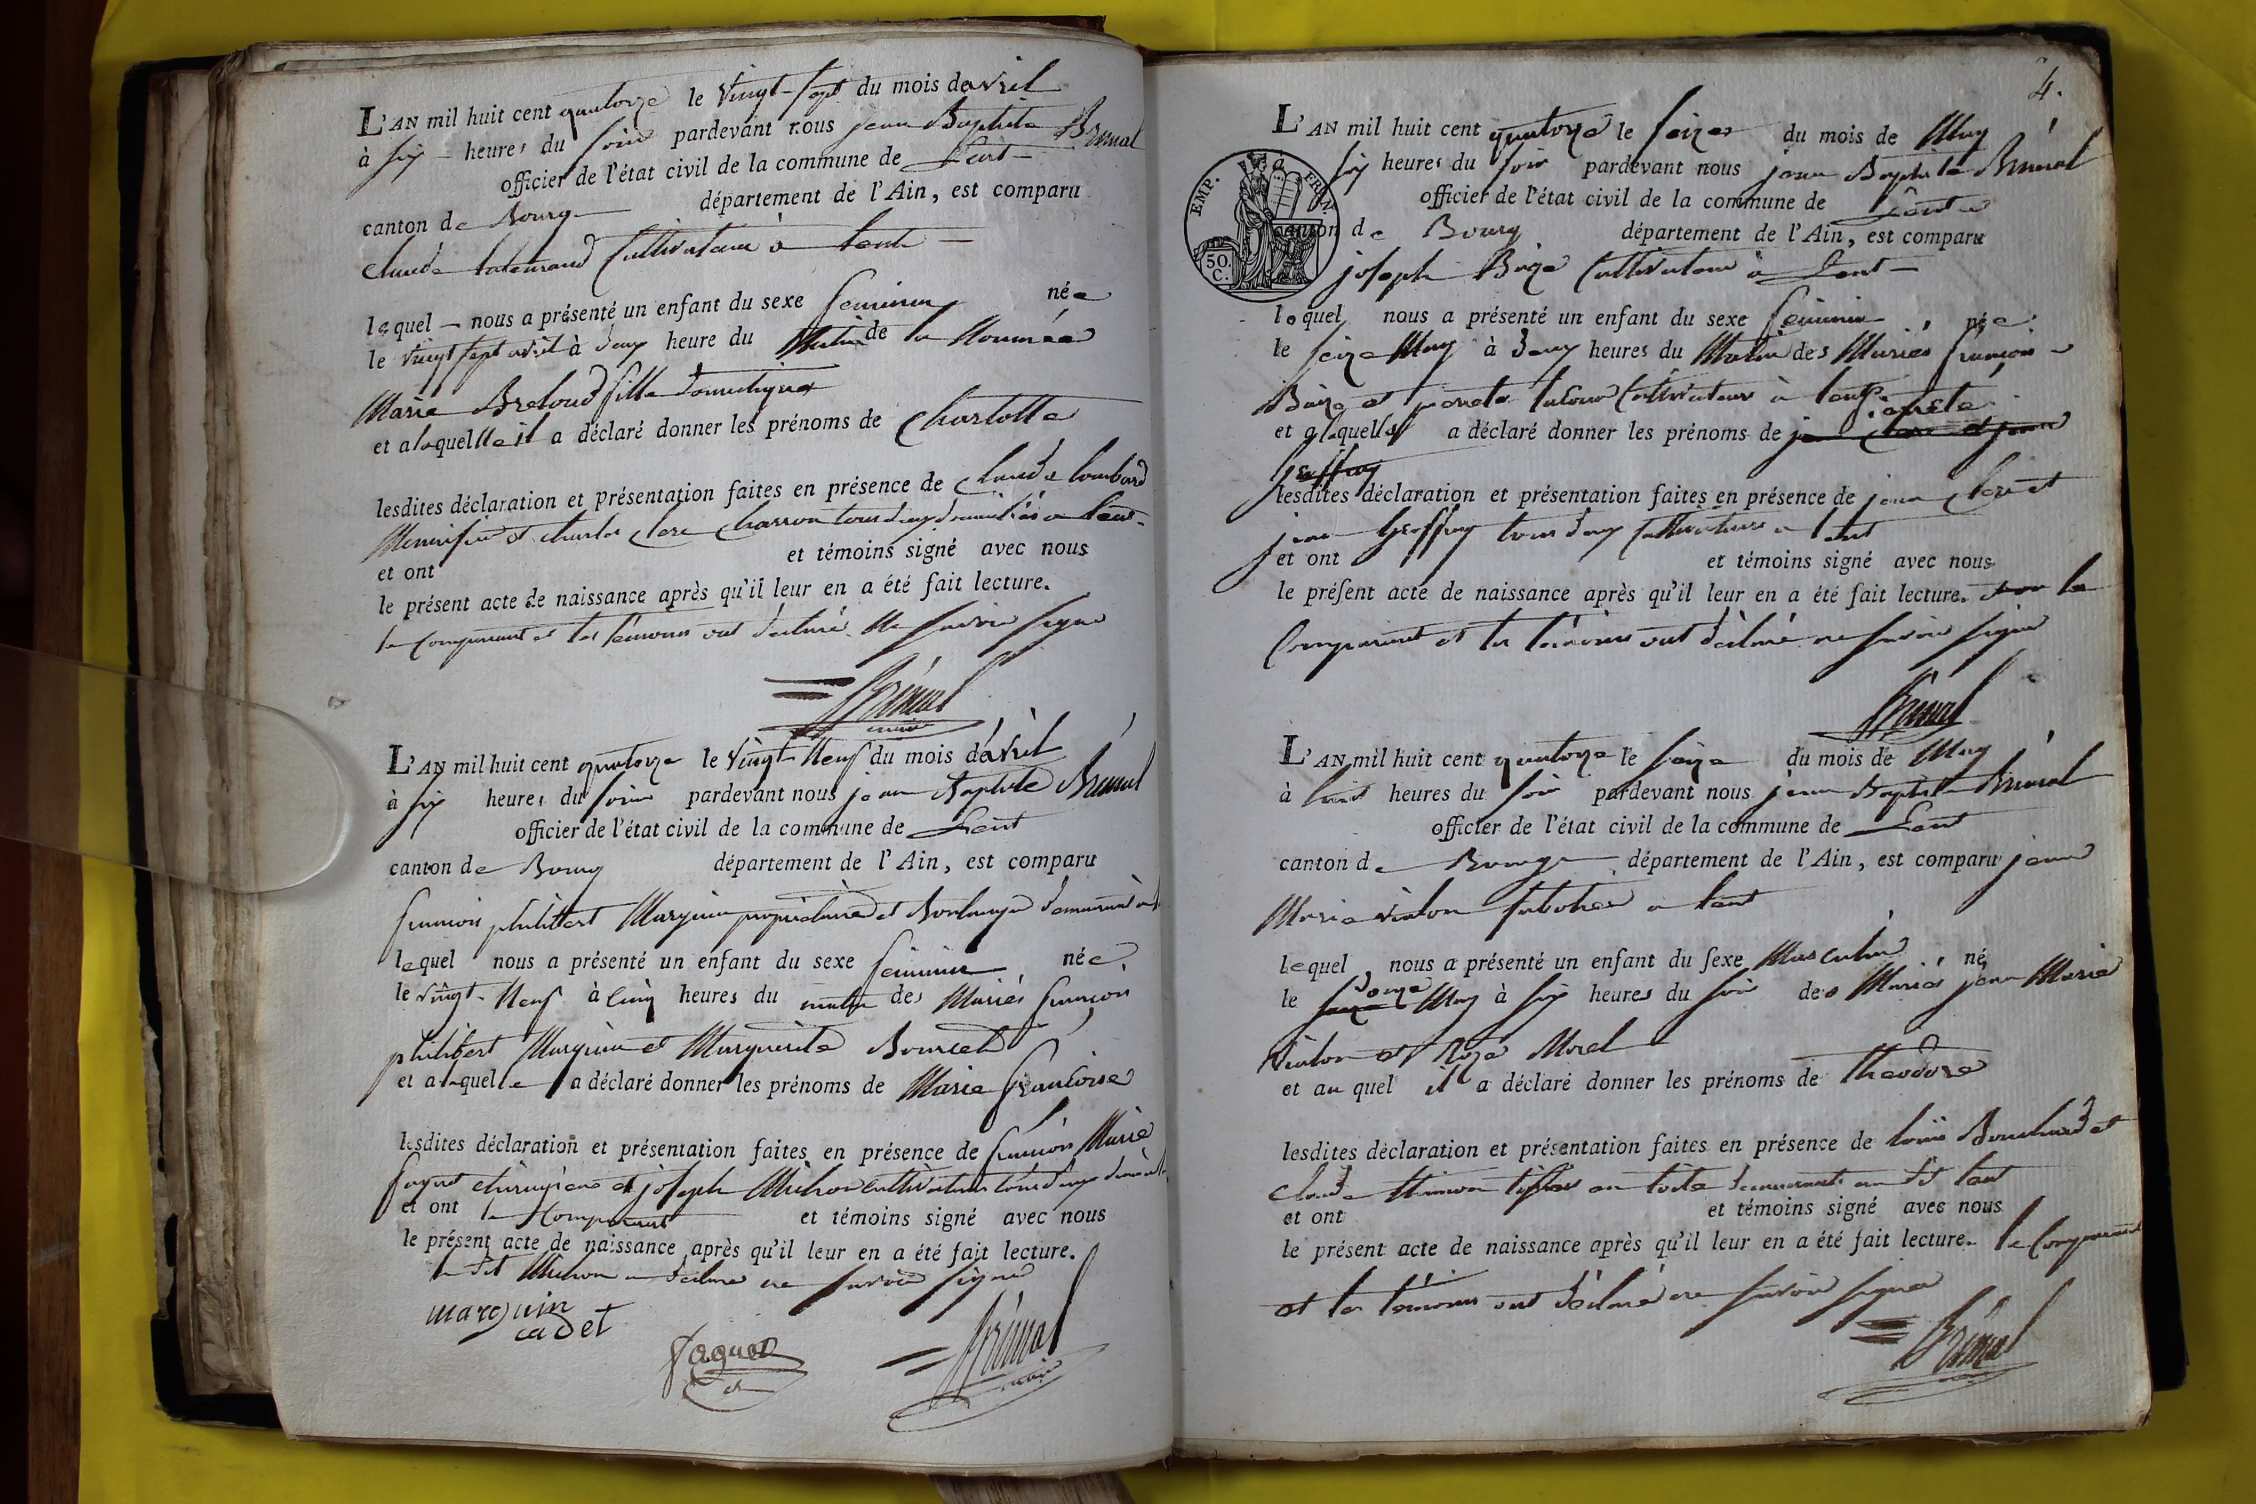 L'AN mil huit cent quatorze le vingt-sept du mois d'avril
à six heures du soir pardevant nous jean Baptiste Brunal
officier de l'état civil de la commune de Lent
canton de Bourg département de l'Ain, est comparu
Claude cultivateur à Lent
lequel nous a présenté un enfant du sexe feminin née
le vingt sept avril à deux heure du Matin de la Nommée
Marie Breloud fille domestique
et a laquelle il a déclaré donner les prénoms de Charlotte
lesdites déclaration et présentation faites en présence de Claude Lombard
Menuisier et Charles Clere Charron tous deux domiciliés a Lent
et ont et témoins signé avec nous
le présent acte de naissance après qu'il leur en a été fait lecture.
le comparant et les témoins ont déclaré ne savoir signer
Brunal
maire
L'AN mil huit cent quatorze le vingt-neuf du mois d'avril
à six heures du soir pardevant nous jean Baptiste Brunal
officier de l'état civil de la commune de Lent
canton de Bourg département de l'Ain, est comparu
françois philibert Marguin propriétaire et Boulanger demeurant à
lequel nous a présenté un enfant du sexe feminin née
le vingt-neuf à cinq heures du matin des Mariés françois
philibert Marguin et Marguerite Bourcet
et a laquelle a déclaré donner les prénoms de Marie françoise
lesdites déclaration et présentation faites en présence de françois Marie
faguet chirurgien et joseph Michon cultivateur tous deux
et ont le comparant et témoins signé avec nous
le présent acte de naissance après qu'il leur en a été fait lecture.
le dit Michon a déclaré ne savoir signer
marguin
cadet
faguet
Brunal
maire
4.
L'AN mil huit cent quatorze le seize du mois de May
à six heures du soir pardevant nous jean Baptiste Brunal
officier de l'état civil de la commune de Lent
canton de Bourg département de l'Ain, est comparu
EMP. FRAN.
50. C.
joseph Boize cultivateur à Lent
lequel nous a présenté un enfant du sexe feminin née
le seize May à deux heures du Matin des Mariés françois
Boize et perrete cultivateurs à Lent
perrete
et a laquelle a déclaré donner les prénoms de jean Clere et jean
Geoffray
lesdites déclaration et présentation faites en présence de jean Clere et
jean Geoffray tous deux cultivateurs a Lent
et ont et témoins signé avec nous
le présent acte de naissance après qu'il leur en a été fait lecture. le
Comparant et les témoins ont déclaré ne savoir signer
Brunal
L'AN mil huit cent quatorze le seize du mois de May
à huit heures du soir pardevant nous jean Baptiste Brunal
officier de l'état civil de la commune de Lent
canton de Bourg département de l'Ain, est comparu jean
Marie Vialon sabotier a Lent
lequel nous a présenté un enfant du sexe Masculin né
douze
le seize May à six heures du soir des Mariés jean Marie
Vialon et Roze Morel
et au quel il a déclaré donner les prénoms de Theodore
lesdites déclaration et présentation faites en présence de Louis Bouchard et
Claude tissier en toile demeurant au dit Lent
et ont et témoins signé avec nous
le présent acte de naissance après qu'il leur en a été fait lecture. le Comparant
et les témoins ont déclaré ne savoir signer
Brunal
maire